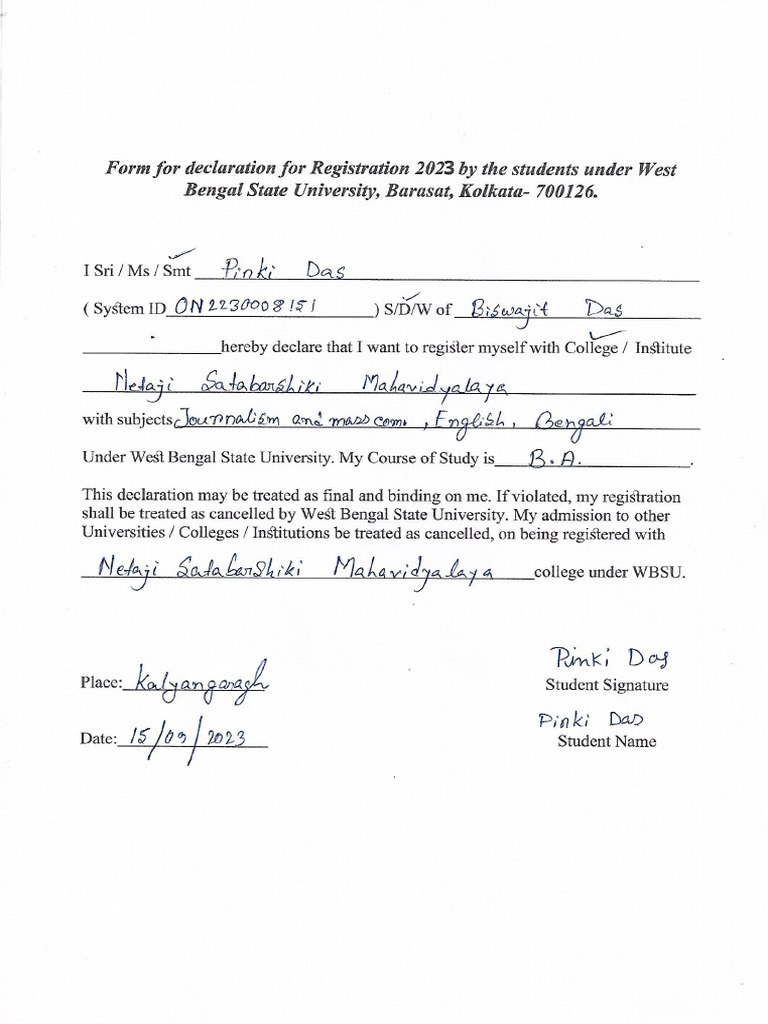 Form for declaration for Registration 2023 by the students under West
Bengal State University, Barasat, Kolkata- 700126.
I Sri / Ms / Smt Pinki Das
( System ID ON2230008151 ) S/D/W of Biswajit Das
hereby declare that I want to register myself with College / Institute
Netaji Satabarshiki Mahavidyalaya
with subjects Journalism and mass com. , English, Bengali
Under West Bengal State University. My Course of Study is B.A. .
This declaration may be treated as final and binding on me. If violated, my registration
shall be treated as cancelled by West Bengal State University. My admission to other
Universities / Colleges / Institutions be treated as cancelled, on being registered with
Netaji Satabarshiki Mahavidyalaya college under WBSU.
Pinki Das
Place: Kalyangaragh
Student Signature
Pinki Das
Date: 15/09/2023
Student Name